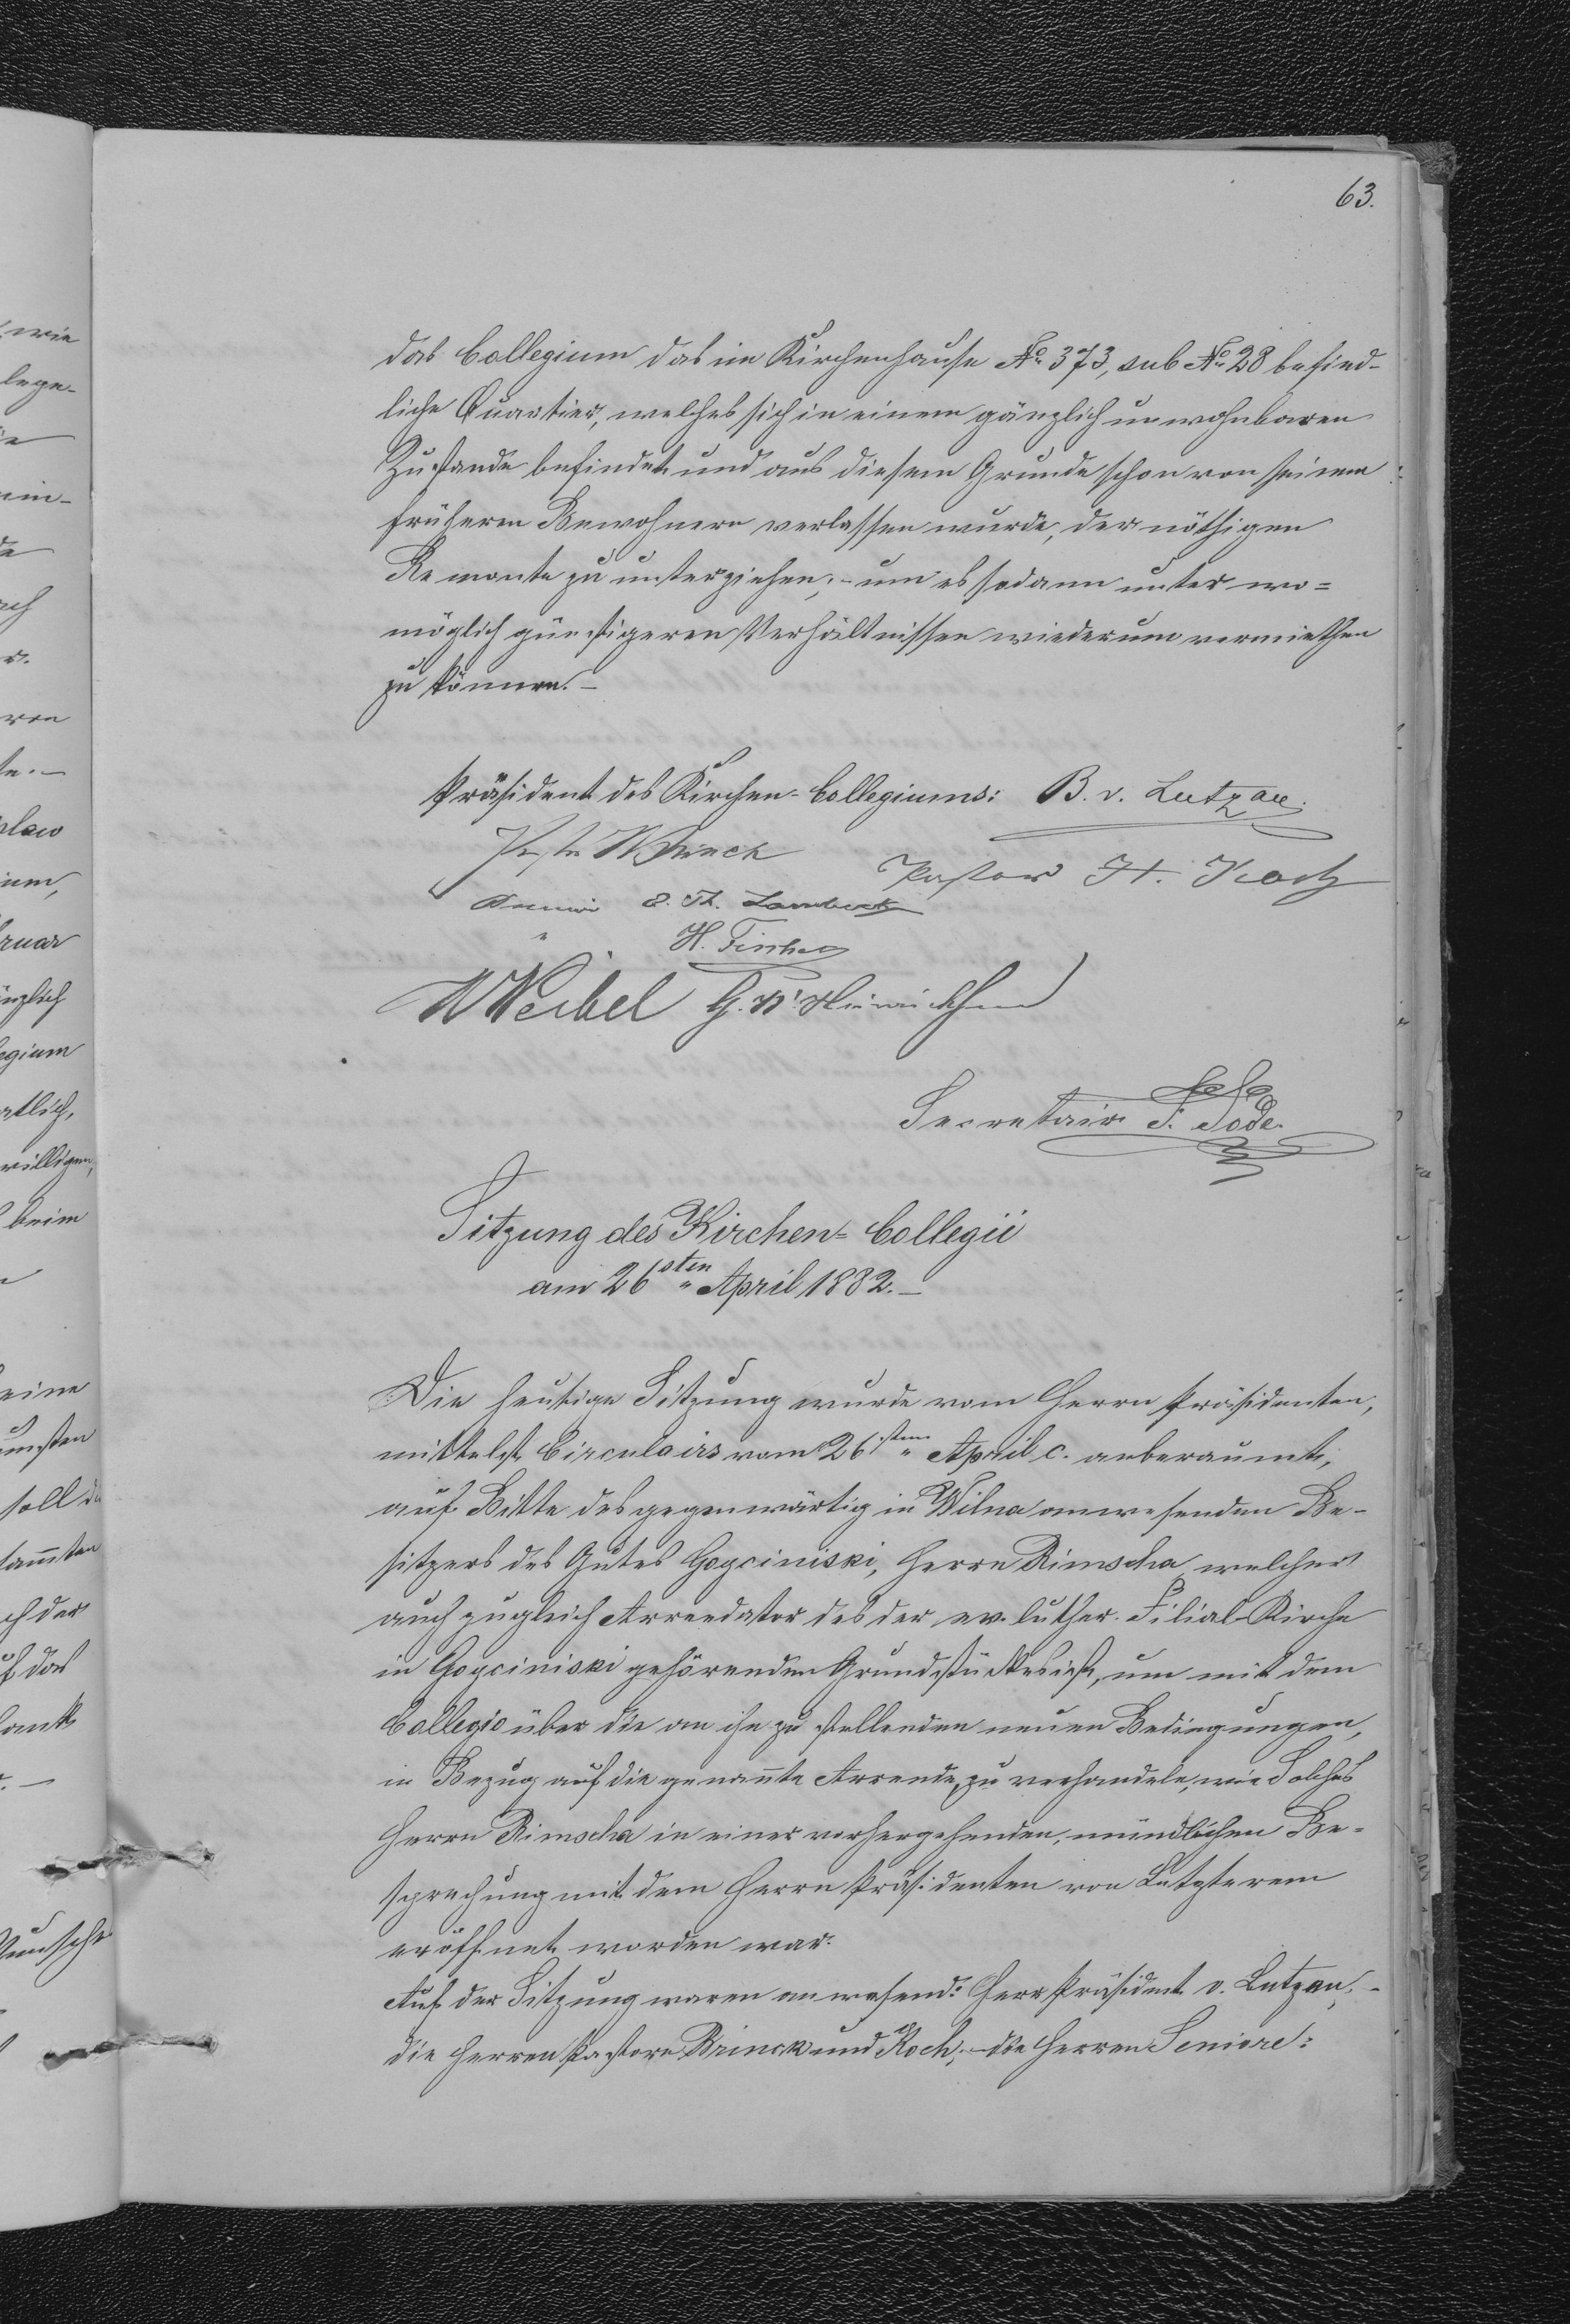 63.
das Collegium das im Kirchenhause No 373, sub No 28 befind-
liche Quartier, welches sich in einem gänzlich unwohnbaren
Zustande befindet und aus diesem Grunde schon von seinem
früheren Bewohnern verlassen wurde, der nöthigen
Remonte zu unterziehen; - um es sodann unter wo=
möglich günstigeren Verhältnissen wiederum vermiethen
zu können. -
Präsident des Kirchen-Collegiums: B. v. Lutzau.
Pastor Brinck
Pastor H. Koch
Senior E. Th. Lambeck
" H. Fischer
W Weibel G. W. Hinrichsen
Secretair F. Tode.
Sitzung des Kirchen=Collegii
am 26sten April 1882. -
Die heutige Sitzung wurde vom Herrn Präsidenten,
mittelst Circulairs vom 26sten April c. anberaumt,
auf Bitte des gegenwärtig in Wilna anwesenden Be-
sitzers des Gutes Gogciniski, Herrn Rimscha, welcher
auch zugleich Arrendator des der ev. luther. Filial-Kirche
in Gogciniski gehörenden Grundstückes ist, um mit dem
Collegio über die an ihn zu stellenden neuen Bedingungen,
in Bezug auf die genannte Arrende, zu verhandeln, wie Solches
Herrn Rimscha in einer vorhergehenden, mündlichen Be=
sprechung mit dem Herrn Präsidenten von Letzterem
eröffnet worden war.
Auf der Sitzung waren anwesend: Herr Präsident v. Lutzau; -
die Herren Pastore Brinck und Koch; - die Herren Seniore:
wie
lege-
in-
von
te. -
slaw
ruar
nzlich
egium
willigen,
beim
eine
soll
ch der
f das
Wunsche